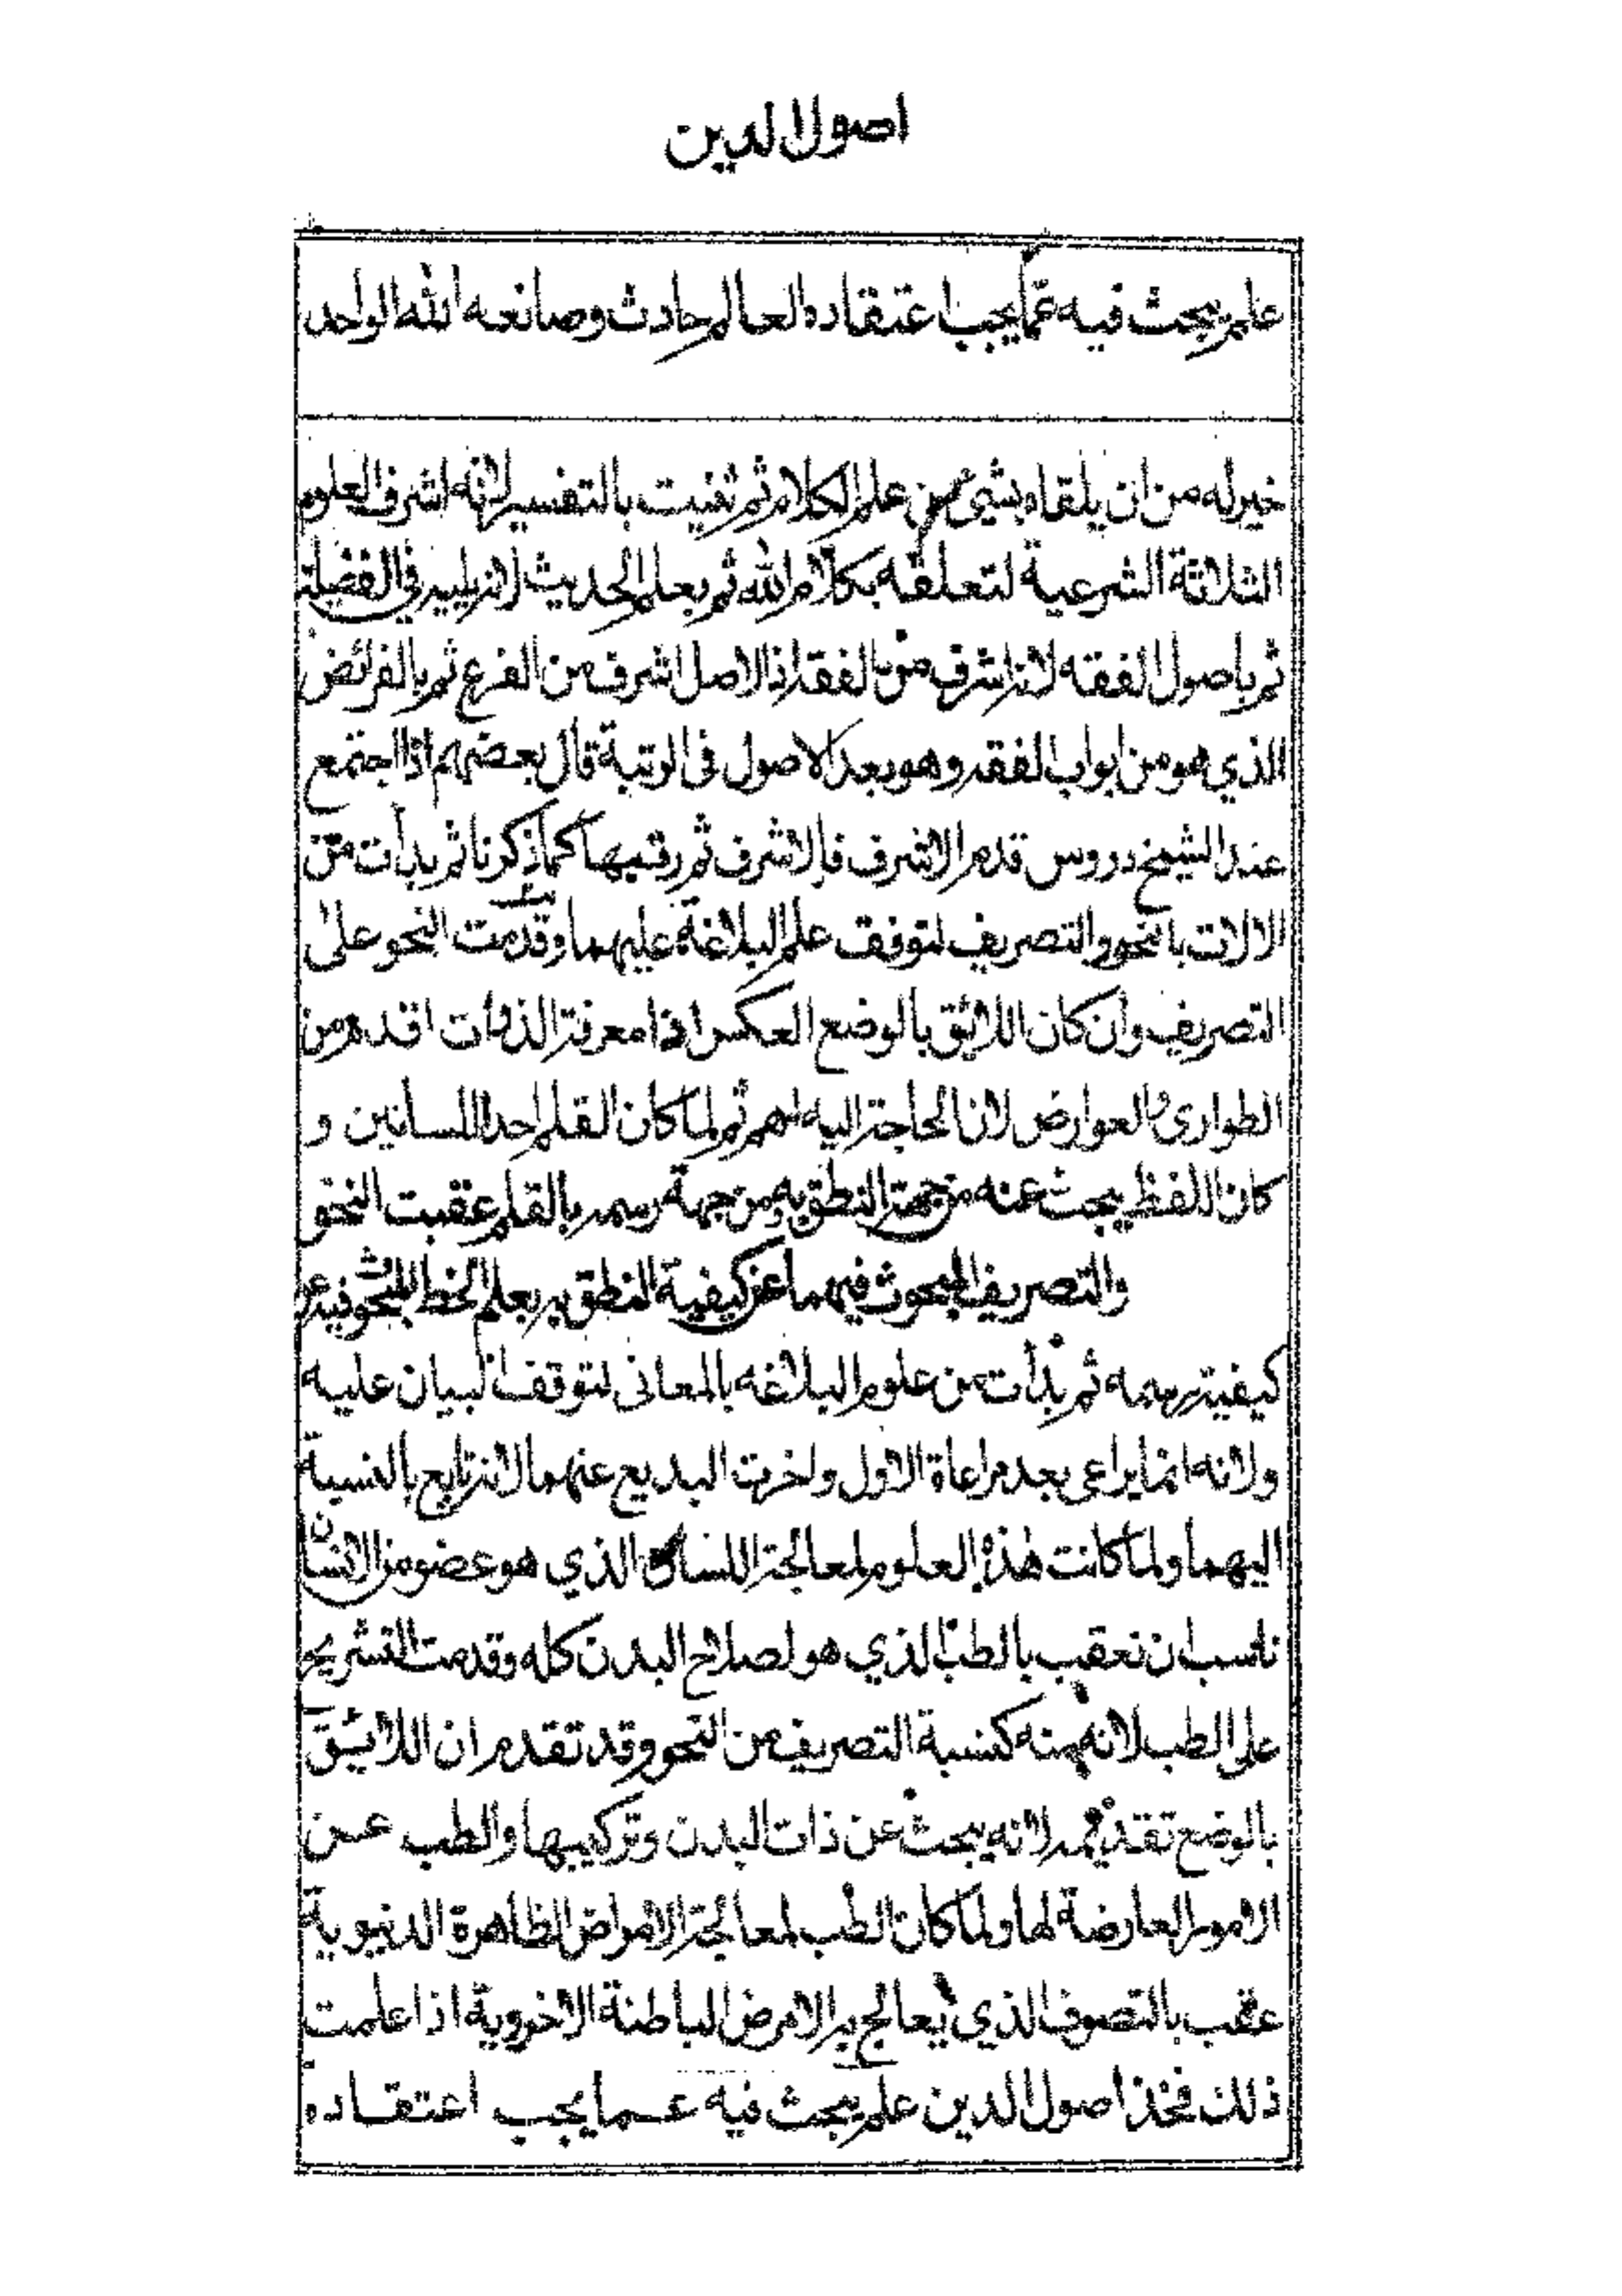 اصول الدين
علم يبحث فيه عما يجب اعتقاده العالم حادث وصانعه الله الواحد
خير له من ان يلقاه بشيئ من علم الكلام ثم ثنيت بالتفسير لانه اشرف العلوم
الثلاثة الشرعية لتعلقه بكلام الله ثم بعلم الحديث لانه يليه في الفضيلة
ثم باصول الفقه لانه اشرف من الفقه اذ الاصل اشرف من الفرع ثم بالفرائض
الذي هو من ابواب الفقه وهو بعد الاصول فى الرتبة قال بعضهم اذا اجتمع
عند الشيخ دروس قدم الاشرف فالاشرف ثم رقيبها كما ذكرنا ثم بدأت من
الالات بالنحو والتصريف لتوقف علم البلاغة عليهما وقدمت النحو على
التصريف وان كان اللائق بالوضع العكس اذ معرفة الذوات اقدم من
الطوارئ والعوارض لان الحاجة اليه اهم ثم لما كان القلم احد اللسانين و
كان اللفظ يبحث عنه من جهة النطق به ومن جهة رسمه بالقلم عقبت النحو
والتصريف المبحوث فيهما عن كيفية النطق به بعلم الخط المبحوث فيه عن
كيفية رسمه ثم بدأت من علوم البلاغه بالمعانى لتوقف البيان عليه
ولانه انما يراعى بعد مراعاة الاول واخرت البديع عنهما لانه تابع بالنسبة
اليهما ولما كانت هذه العلوم لمعالجة اللسان الذي هو عضو من الانسان
ناسب ان نعقب بالطب الذي هو لصلاح البدن كله وقدمت التشريح
على الطب لانه منه كنسبة التصريف من النحو وقد تقدم ان اللائق
بالوضع تقديمه لانه يبحث عن ذات البدن وتركيبها والطب عن
الامور العارضة لها ولما كان الطب لمعالجة الامراض الظاهرة الدنيوية
عقب بالتصوف الذي يعالج به الامرض الباطنة الاخروية اذا علمت
ذلك فخذ اصول الدين علم يبحث فيه عما يجب اعتقاده